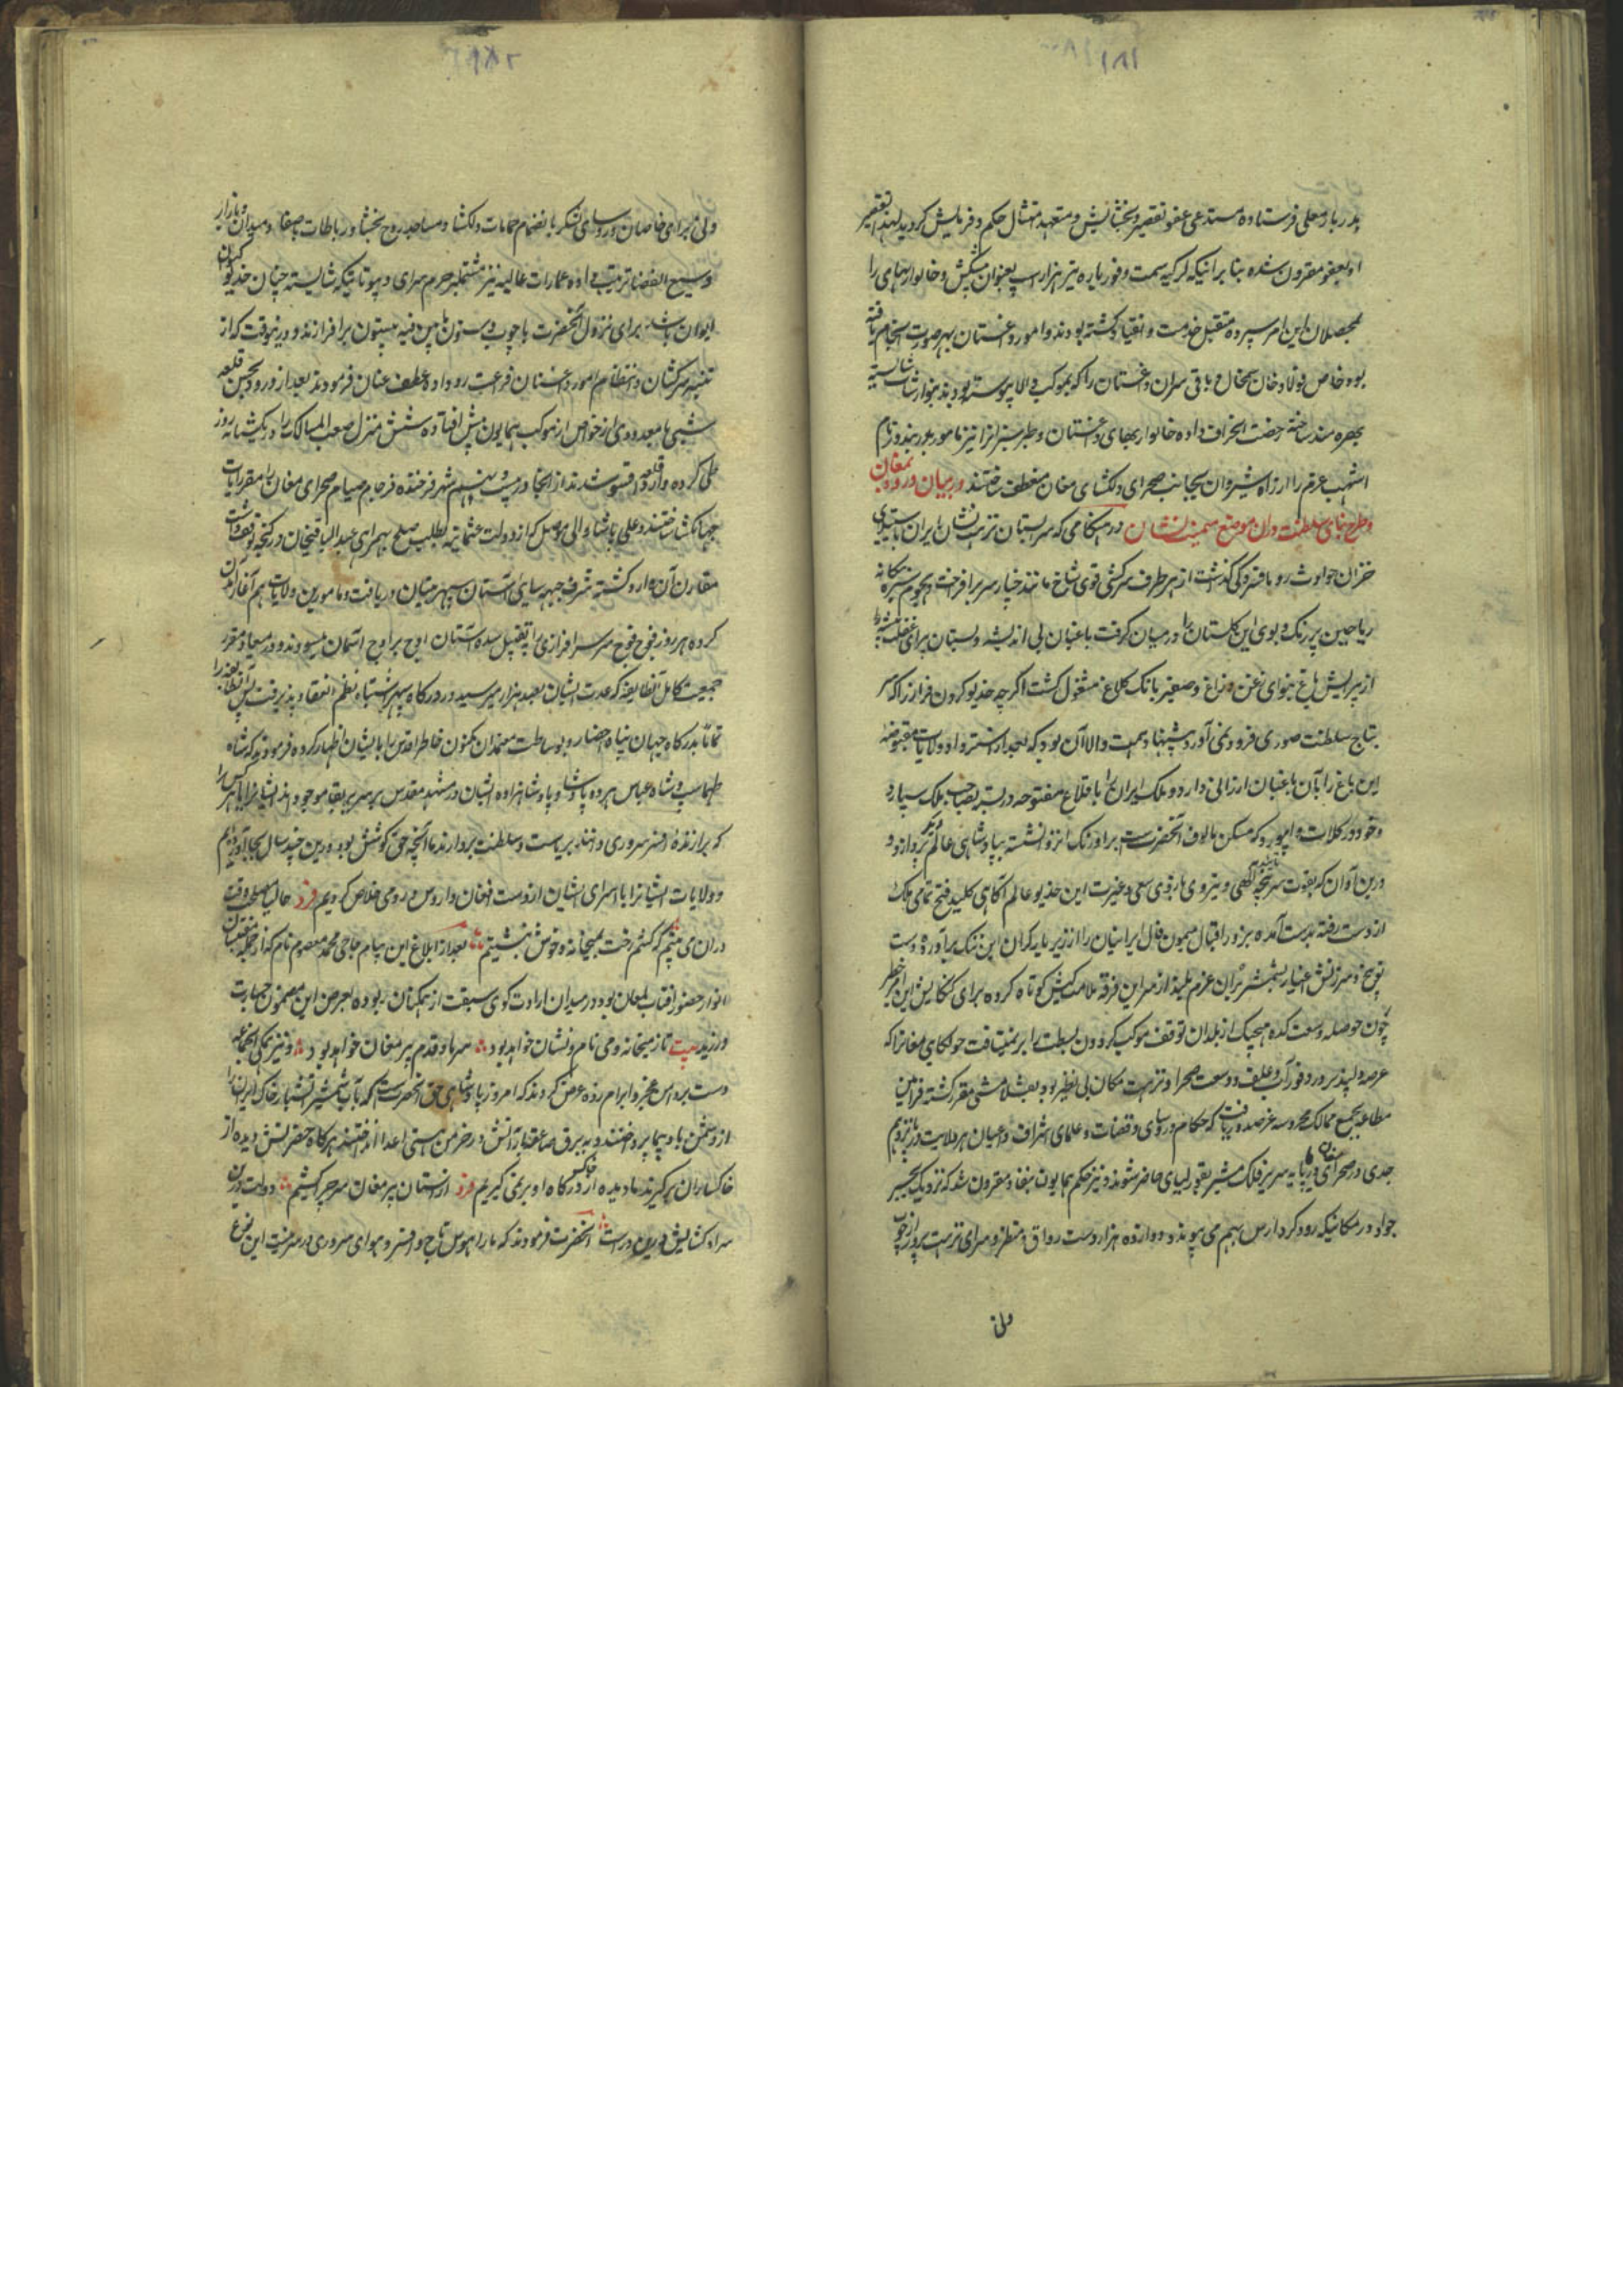 ۱۸۱
بدربار معلی فرستاده مستدعی عفو تقصیر و بخشایش و متعهد امتثال حکم و فرمایش کردید لهذا تقصیر
او بعفو مقرون شده بنا بر اینکه کرکیه سمت وفور یاره نیز هزار اسب بعنوان پیشکش و خانوارهای را
بمحصلان این امر سپرده متقبل خدمت و انقیاد کشته بودند و امور داغستان بهر صورت انجام یافته
بود خاص فولاد خان شمخال و باقی سران داغستان را که بموکب والا پیوسته بودند بنوازشات شایسته
بهره مند ساخته رخصت انحراف داده خانوارهای داغستان و طبرسران را نیز مامور بدربند و زمام
اشهب عزم را از راه شیروان بجانب صحرای دلکشای مغان منعطف ساختند در بیان ورود بمغان
و طرح بنای سلطنت در آن موضع سمینت نشان در هنکامی که سرابستان نزهت نشان ایران باستیلای
خزان حوادث رو بافسردکی کذاشت از هر طرف سرکشی قوی شاخ مانند خیار سر برافراخت و هجوم سبزه بیکانه
ریاحین پر رنک و بوی این کلستان را در میان کرفت باغبان بی اندیشه دبستان برای غفلت پیشه
از پیرایش باغ بنوای زغن و زاغ و صغیر بانک کلاغ مشغول کشت اکر چه خدیو کردون فراز را که سر
بتاج سلطنت صوری فرود نمی آورد پیشنهاد همت والا آن بود که بعد از استرداد ولایات مغصوبه
این باغ را بآن باغبان ارزانی دارد و ملک ایران را با قلاع مفتوحه در بسته بصاحب ملک سپارد
و خود در کلات و ابیورد که مسکن مالوف آنحضرت است بر اورنک انزوا نشسته بپادشاهی عالم دیکر پردازد و
درین آوان که بقوت سرپنجه تایید الهی و نیروی بازوی سعی و غیرت این خدیو عالم آکاهی کلید فتح تمامی ممالک
از دست رفته بدست آمده بزور اقبال میمون فال ایرانیان را از زیر بار کران این ننک برآورده دست
توبیخ و سرزنش اغیار بشمشیر بران عزم غلیظ از سر این فرقه ملامت کیش کوتاه کرده برای کنکایش این امر خطیر
چون حوصله وسعت کده هیچیک از بلدان توقف موکب کردون بسطت را برنمیتافت جولکای مغانرا که
عرصه دلپذیر و وفور آب و علف و وسعت صحرا و نزهت مکان بی نظیر بود بقشلامشی مقرر کشته فرامین
مطاعه بجمیع ممالک محروسه عز صدور یافت که حکام و روسای و قضات و علمای اشراف و اعیان هر ولایت در پانزدهم
جدی در صحرای مغان در پایه سریر فلک مسیر بقورلتای حاضر شوند و نیز حکم همایون بنفاذ مقرون شد که نزدیک بجسر
جواد در مکانیکه رود کر و ارس بهم می پیوندد دوازده هزار دست رواق و منظر و سرای نزهت پرور از چوب
ولی
۱۸۲
و نی برای خاصان و روسای لشکر بانضمام حمامات دلکشا و مساجد روح بخشا و رباطات باصفا و میدان و بازار
وسیع الفضا ترتیب داده عمارات عالیه نیز مشتمل بر حرم سرای و بیوتاتیکه شایسته چنان خدیو کردون
ایوان باشد برای نزول آنحضرت با چوب و ستون باین منه بیستون برافرازند و درینوقت که از
تنبیه سرکشان و انتظام امور داغستان فراغت رو داده عطف عنان فرمودند بعد از ورود بحسن قلعه
سی با معدودی از خواص از موکب همایون پیش افتاده شش منزل صعب المسالک را در یکشبانه روز
طی کرده وارد قلعه اقسو شدند از آنجا در بیست و نهم شهر فرخنده فرجام صیام صحرای مغان را مقر رایات
جهانکشا ساختند و علی پاشا والی موصل که از دولت عثمانیه بطلب صلح بهمراهی عبدالباقیخان در کنجه توقف داشت
مقارن آن وارد کشته شرف جبهه سای آستان سپهر بنیان دریافت و مامورین ولایات هم آغاز آمدن
کرده هر روز فوج فوج سر سرافرازی را بتقبیل سده آستان اوج بر اوج آسمان میسودند و در میعاد مقرر
جمعیت کامل آنطایفه که عدت ایشان بصد هزار میرسید در درکاه سپهر اشتباه نظم انعقاد پذیرفت پس آنطایفه را
تماما بدرکاه جهان پناه احضار و بوساطت معتمدان مکنون خاطر اقدس را بایشان اظهار کرده فرمودند که شاه
طهماسب و شاه عباس هر دو پادشاه و پادشاهزاده ایشان در مشهد مقدس بر سریر بقا موجودند ایشانرا یا هر کس را
که برازنده افسر سروری دانند بریاست و سلطنت بردارند ما آنچه حق کوشش بود درین چند سال بجا آوردیم
و ولایات ایشانرا با اسرای ایشان از دست افغان و اروس و رومی خلاص کردیم فرد حالیا مصلحت وقت
در آن می بینم که کشم رخت بمیخانه و خوش بنشینم بعد از ابلاغ این پیام حاجی محمد معصوم نام که از جمله مقتبسان
انوار حضور آفتاب لمعان بود در میدان ارادت کوی سبقت از همکنان ربوده بعرض این مضمون جسارت
ورزید بیت تا ز میخانه و می نام و نشان خواهد بود سر ما و قدم پیر مغان خواهد بود و نیز همکی آنجماعه
دست بر دامن عجز و ابرام زده عرض کردند که امروز پادشاهی حق آنحضرت است که بآب شمشیر آتشبار خاک ایران را
از دشمن باد پیما پرداختند و به برق صاعقه بار آتش در خرمن هستی اعدا انداختند هرکاه حضرتش دیده از
خاکساران برکیرند ما دیده از خاک درکاه او برنمی کیریم فرد از آستان پیر مغان سر چرا کشیم دولت در آن
سرا و کشایش در آن در است آنحضرت فرمودند که ما را هوس تاج و افسر و هوای سروری در سر نیست این نوع